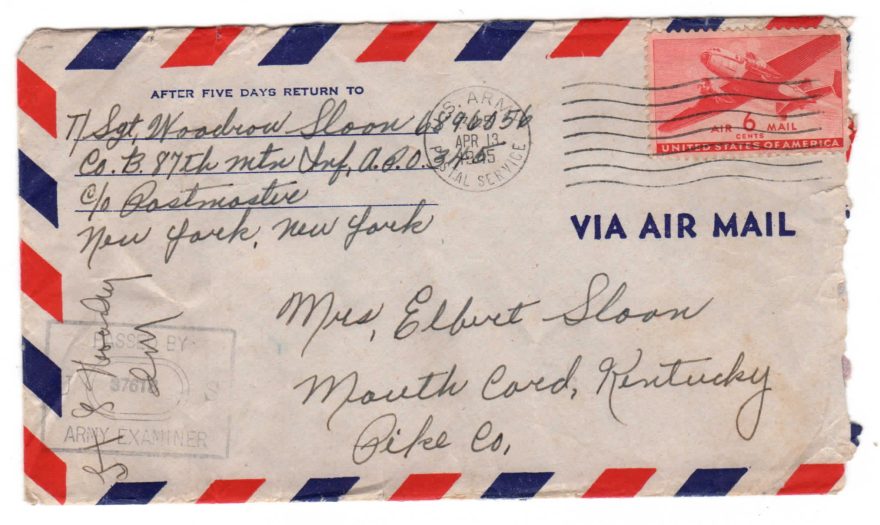 AFTER FIVE DAYS RETURN TO
T/Sgt Woodrow Sloan 6896056
Co. B. 87th mtn Inf, A.P.O. 345
c/o Postmaster
New York, New York
U.S. ARMY
APR 13
1945
POSTAL SERVICE
AIR 6 MAIL
CENTS
UNITED STATES OF AMERICA
VIA AIR MAIL
Mrs, Elbert Sloan
Mouth Card, Kentucky
Pike Co,
PASSED BY
U S
ARMY EXAMINER